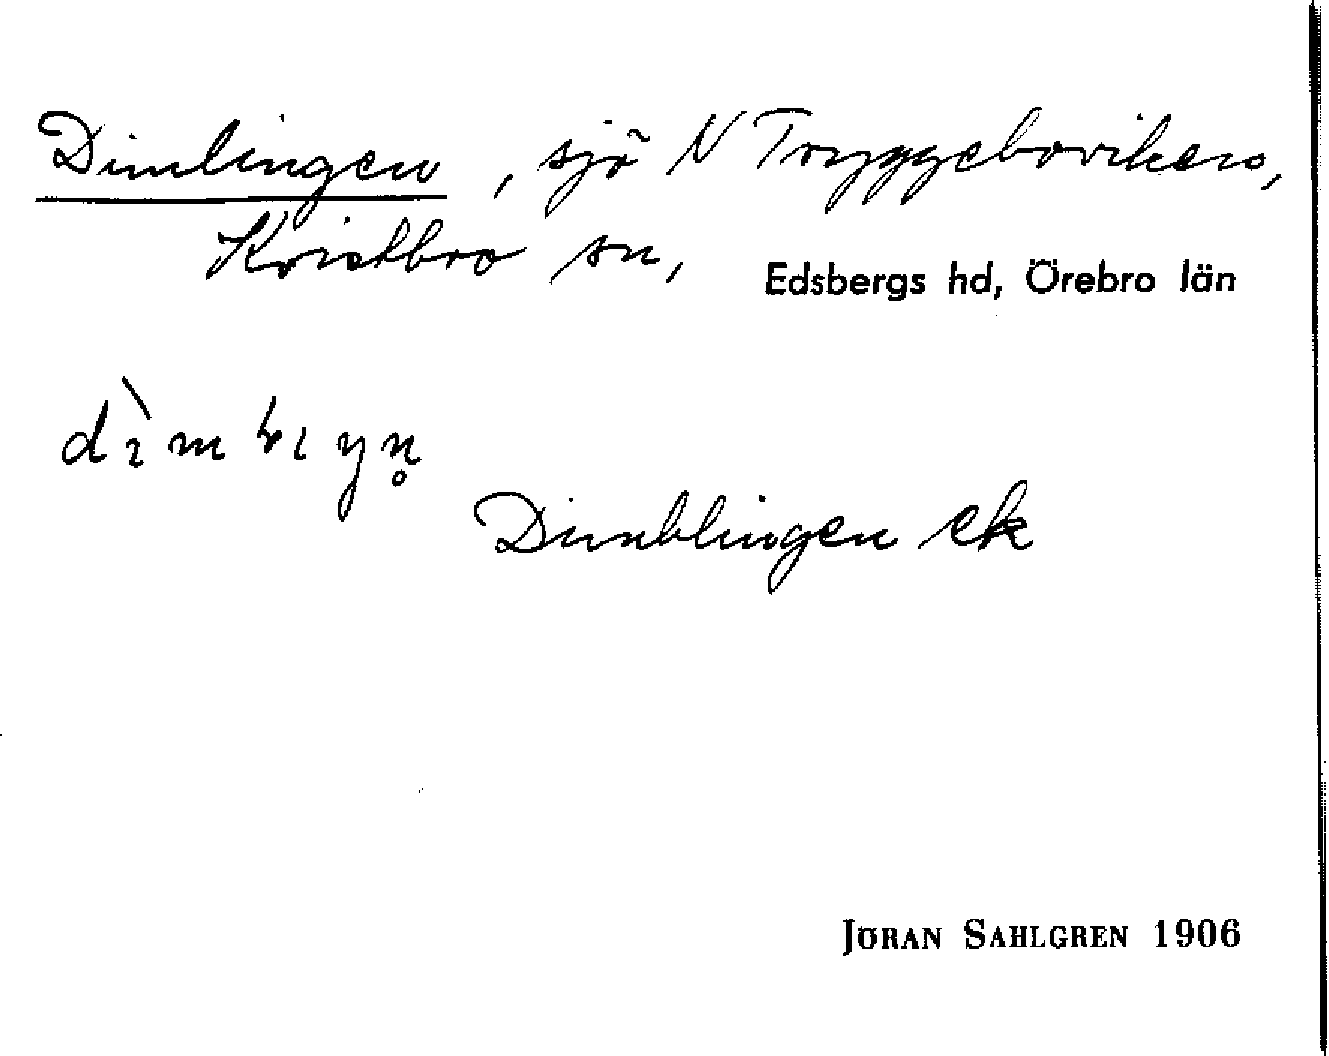 Dimlingen, sjö N Tryggeboviken,
Kvistbro sn, Edsbergs hd, Örebro län
Dimblingen ek
JÖRAN SAHLGREN 1906